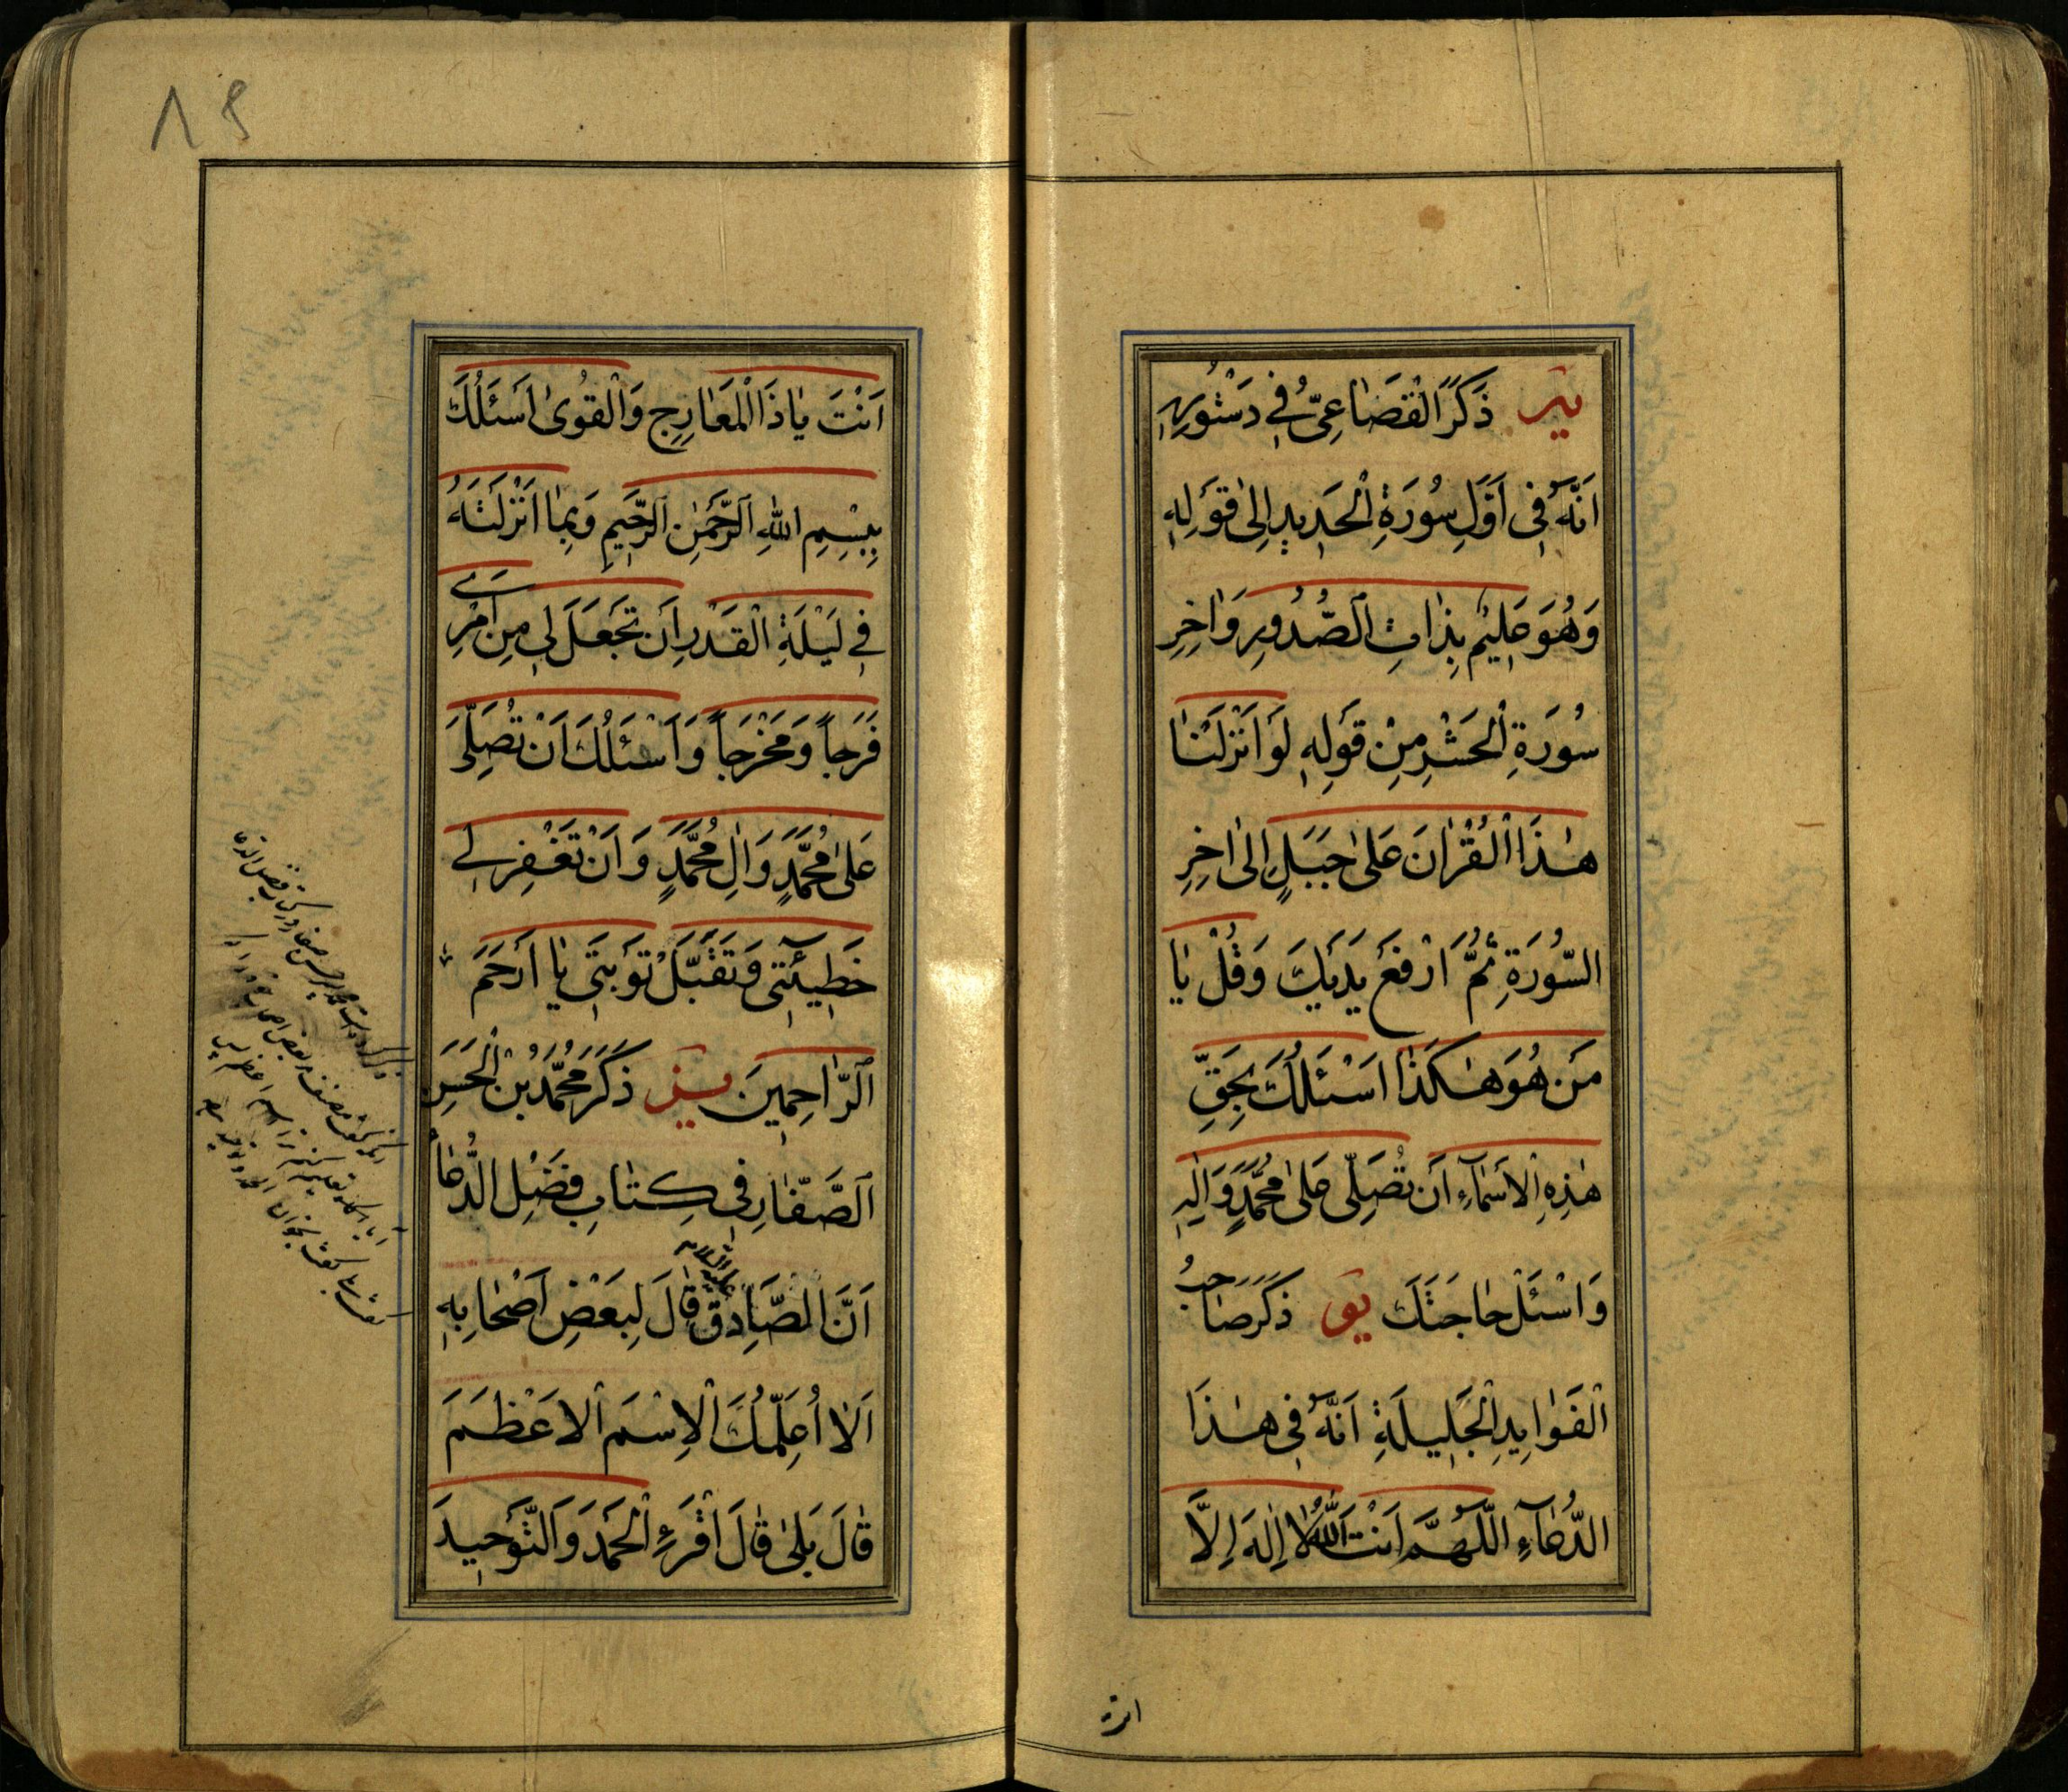 ذَكَرَ الْقُضَاعِىُّ فِي دَسْتُورِهِ
اَنَّهُ فِى اَوَّلِ سُورَةِ الْحَدِيدِ اِلىٰ قَوْلِهِ
وَهُوَ عَلِيمٌ بِذَاتِ الصُّدُورِ وَاٰخِرِ
سُورَةِ الْحَشْرِ مِنْ قَوْلِهِ لَوْ اَنْزَلْنٰا
هٰذَا الْقُرْاٰنَ عَلىٰ جَبَلٍ اِلىٰ اٰخِرِ
السُّورَةِ ثُمَّ ارْفَعْ يَدَيْكَ وَقُلْ يٰا
مَنْ هُوَ هٰكَذٰا اَسْئَلُكَ بِحَقِّ
هٰذِهِ الْاَسْمٰآءِ اَنْ تُصَلِّىَ عَلىٰ مُحَمَّدٍ وَاٰلِهِ
وَاسْئَلْ حٰاجَتَكَ يو ذَكَرَ صٰاحِبُ
الْفَوٰايِدِ الْجَلِيلَةِ اَنَّهُ فِى هٰذَا
الدُّعٰآءِ اللّٰهُمَّ اَنْتَ اللّٰهُ لٰا اِلٰهَ اِلَّا
انت
٨٩
اَنْتَ يٰا ذَا الْمَعٰارِجِ وَالْقُوىٰ اَسْئَلُكَ
بِبِسْمِ اللّٰهِ الرَّحْمٰنِ الرَّحِيمِ وَبِمٰا اَنْزَلْتَهُ
فِي لَيْلَةِ الْقَدْرِ اَنْ تَجْعَلَ لِى مِنْ اَمْرِى
فَرَجاً وَمَخْرَجاً وَاَسْئَلُكَ اَنْ تُصَلِّىَ
عَلىٰ مُحَمَّدٍ وَاٰلِ مُحَمَّدٍ وَاَنْ تَغْفِرَ لِى
خَطِيئَتِى وَتَقَبَّلْ تَوْبَتِى يٰا اَرْحَمَ
الرّٰاحِمِينَ يز ذَكَرَ مُحَمَّدُ بْنُ الْحَسَنِ
الصَّفّٰارِ فِى كِتٰابِ فَضْلِ الدُّعٰاءِ
اَنَّ الصّٰادِقَ عليه السلام قٰالَ لِبَعْضِ اَصْحٰابِهِ
اَلٰا اُعَلِّمُكَ الْاِسْمَ الْاَعْظَمَ
قٰالَ بَلىٰ قٰالَ اقْرَءِ الْحَمْدَ وَالتَّوْحِيدَ